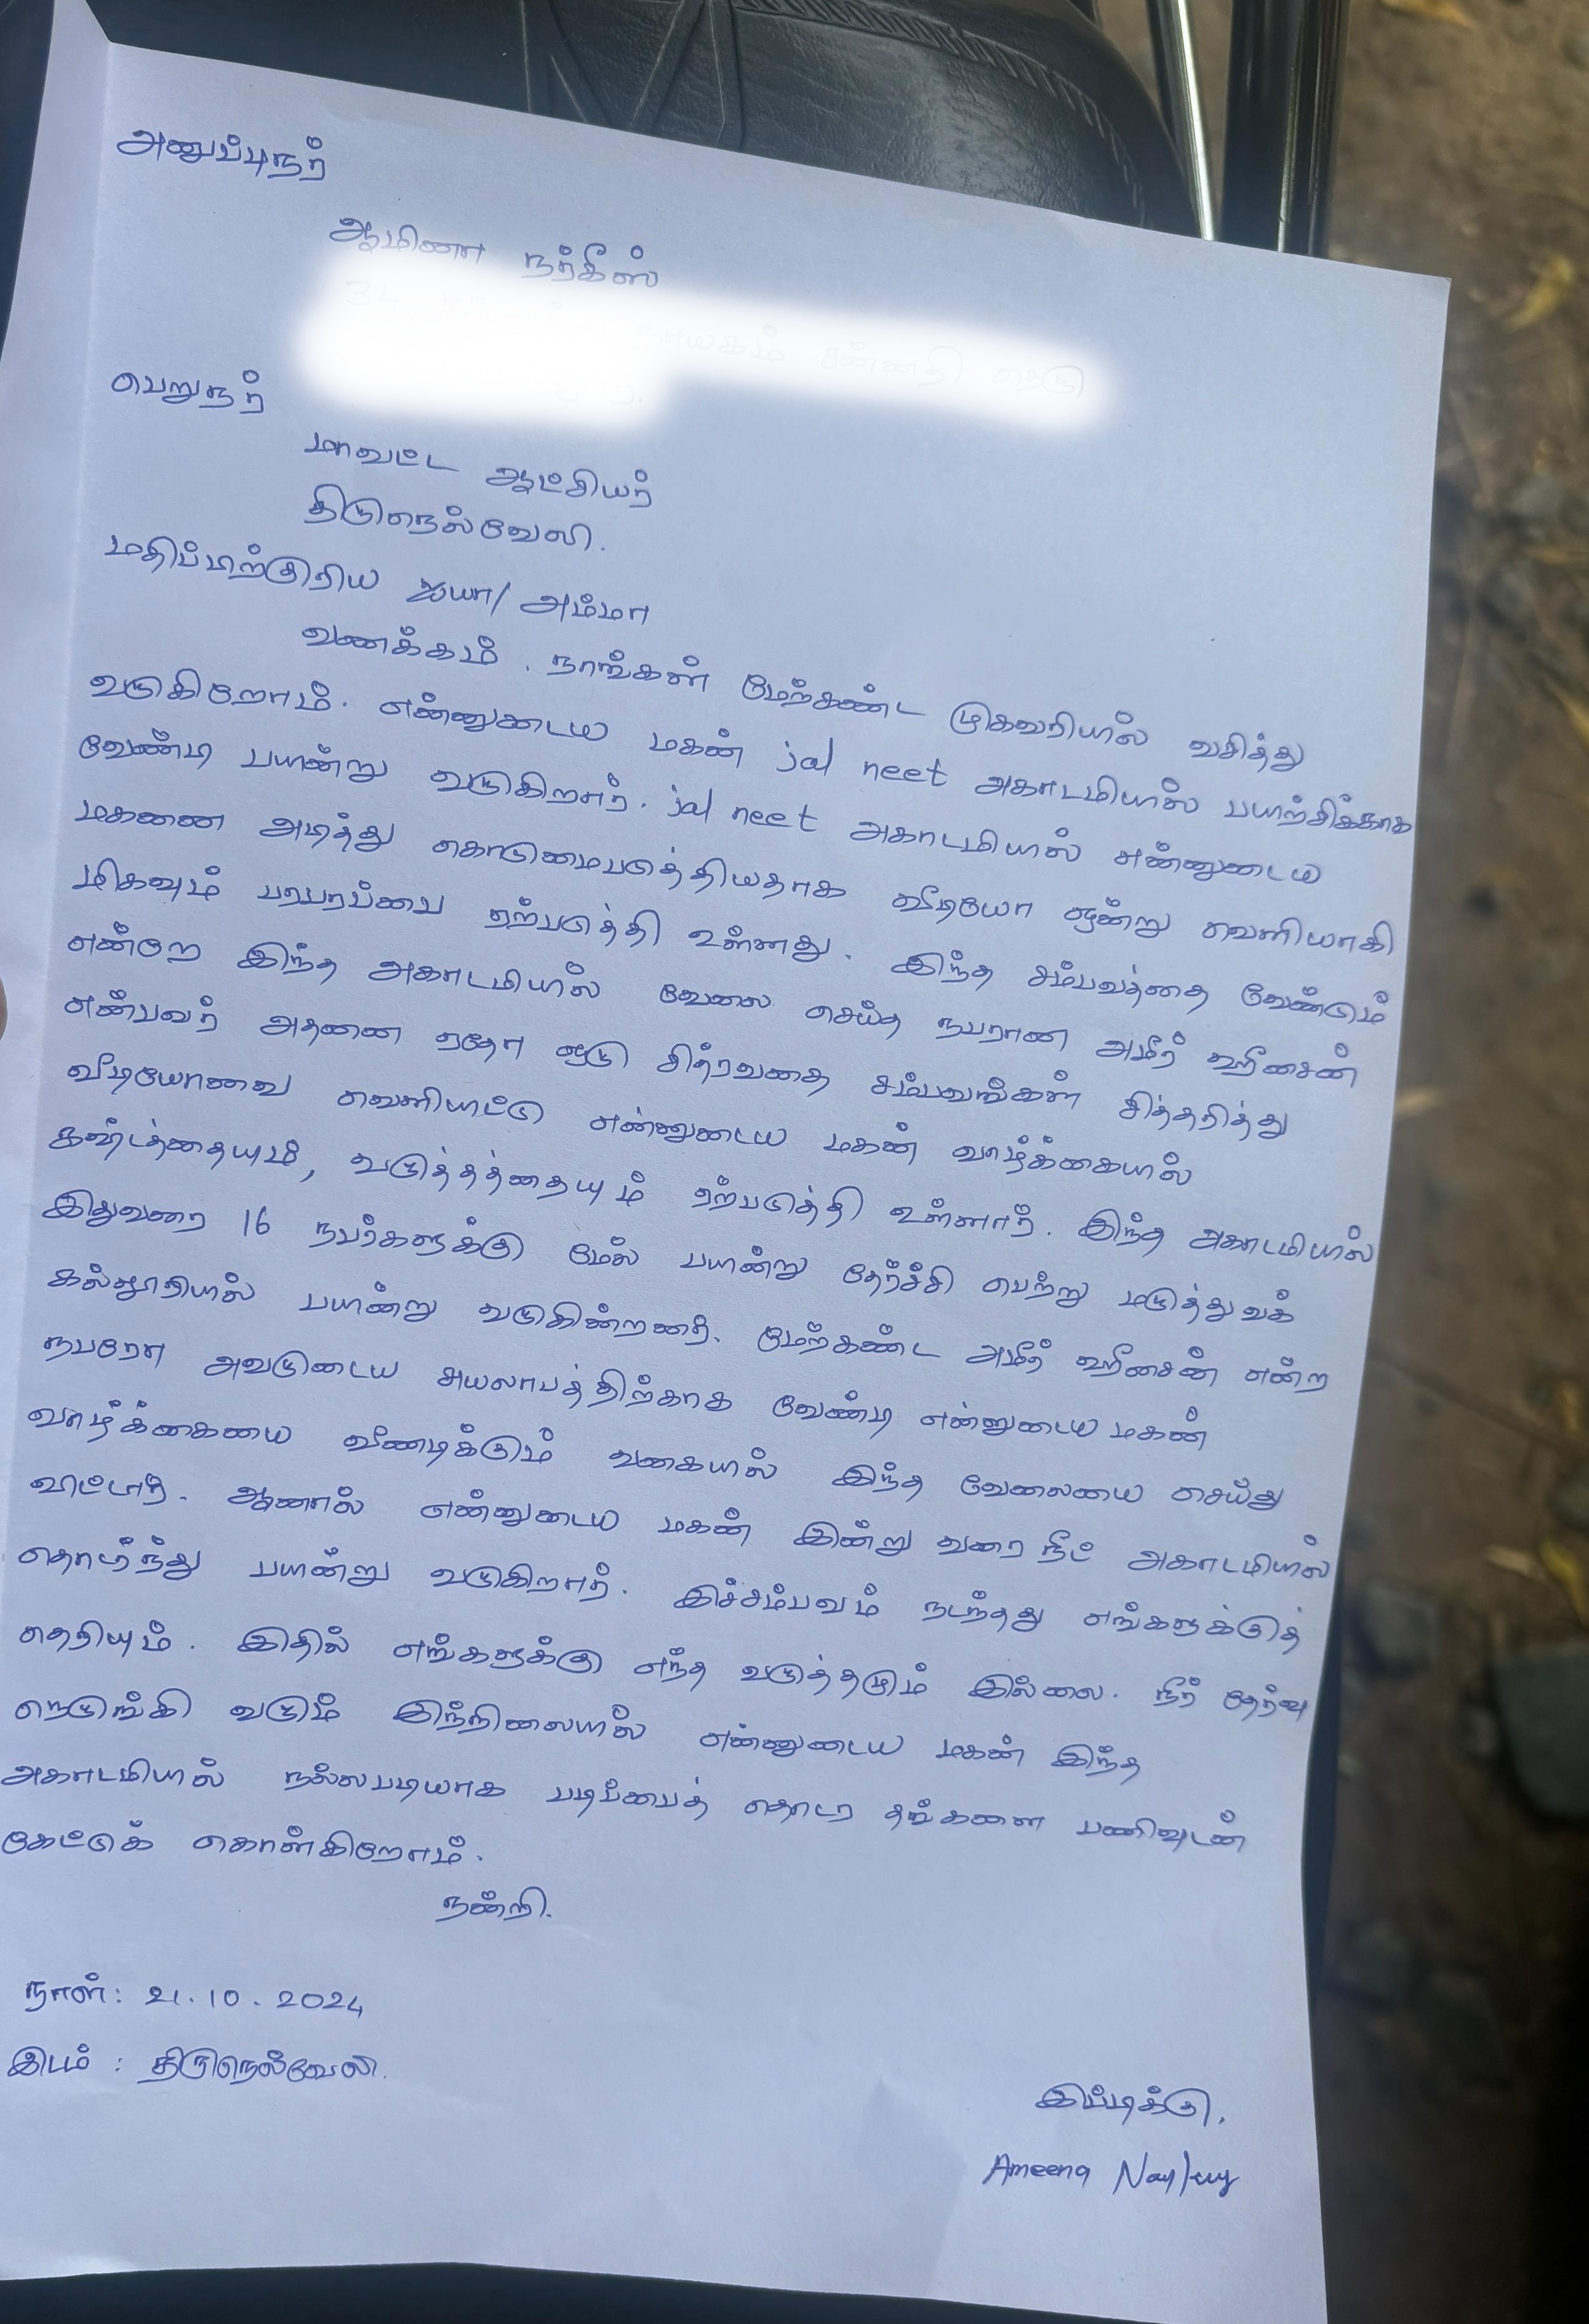 அனுப்புநர்
ஆமினா நர்கீஸ்
34
நாயகம் சன்னதி தெரு
பெறுநர்
மாவட்ட ஆட்சியர்
திருநெல்வேலி.
மதிப்பிற்குரிய ஐயா/ அம்மா
வணக்கம். நாங்கள் மேற்கண்ட முகவரியில் வசித்து
வருகிறோம். என்னுடைய மகன் jal neet அகாடமியில் பயிற்சிக்காக
வேண்டி பயின்று வருகிறார். jal neet அகாடமியில் என்னுடைய
மகனை அடித்து கொடுமைபடுத்தியதாக வீடியோ ஒன்று வெளியாகி
மிகவும் பரபரப்பை ஏற்படுத்தி உள்ளது. இந்த சம்பவத்தை வேண்டும்
என்றே இந்த அகாடமியில் வேலை செய்த நபரான அமீர் ஹீசைன்
என்பவர் அதனை ஏதோ ஒரு சித்ரவதை சம்பவங்கள் சித்தரித்து
வீடியோவை வெளியிட்டு என்னுடைய மகன் வாழ்க்கையில்
கஷ்டத்தையும், வருத்தத்தையும் ஏற்படுத்தி உள்ளார். இந்த அகாடமியில்
இதுவரை 16 நபர்களுக்கு மேல் பயின்று தேர்ச்சி பெற்று மருத்துவக்
கல்லூரியில் பயின்று வருகின்றனர். மேற்கண்ட அமீர் ஹீசைன் என்ற
நபரோ அவருடைய சுயலாபத்திற்காக வேண்டி என்னுடைய மகன்
வாழ்க்கையை வீணடிக்கும் வகையில் இந்த வேலையை செய்து
விட்டார். ஆனால் என்னுடைய மகன் இன்று வரை நீட் அகாடமியில்
தொடர்ந்து பயின்று வருகிறார். இச்சம்பவம் நடந்தது எங்களுக்குத்
தெரியும். இதில் எங்களுக்கு எந்த வருத்தமும் இல்லை. நீட் தேர்வு
நெருங்கி வரும் இந்நிலையில் என்னுடைய மகன் இந்த
அகாடமியில் நல்லபடியாக படிப்பைத் தொடர தங்களை பணிவுடன்
கேட்டுக் கொள்கிறோம்.
நன்றி.
நாள்: 21.10.2024
இடம் : திருநெல்வேலி.
இப்படிக்கு,
Ameena